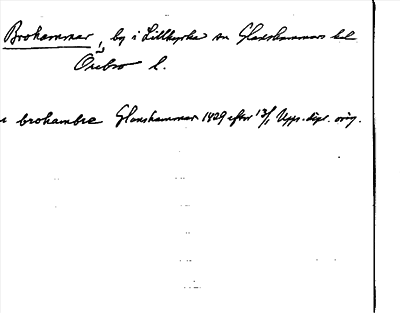 Brohammar, by i Lillkyrka sn Glanshammars hd
Örebro l.
i brohambre Glanshammar 1429 efter 13/1 Upps. dipl. orig.